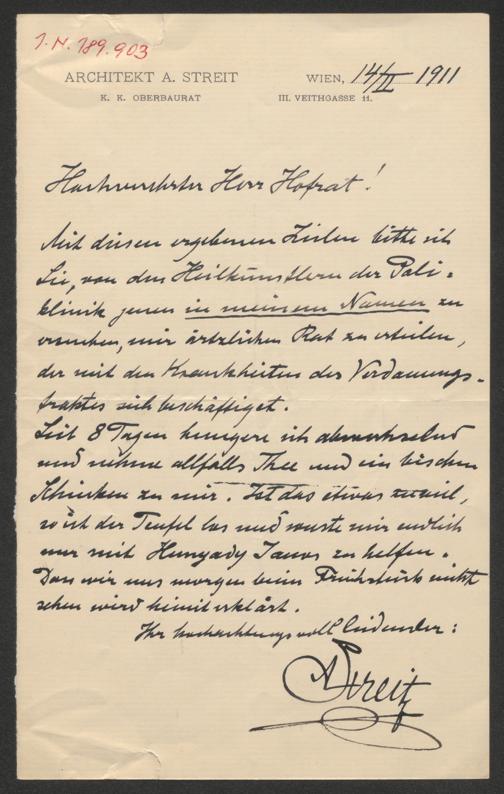 I. N. 189.903
ARCHITEKT A. STREIT
K. K. OBERBAURAT
WIEN, 14/II 1911
III. VEITHGASSE 11.
Hochverehrter Herr Hofrat!
Mit diesen ergebenen Zeilen bitte ich
Sie, von den Heilkünstlern der Poli-
klinik jenen in meinem Namen zu
ersuchen, mir ärtzlichen Rat zu erteilen,
der mit den Krankheiten des Verdauungs-
traktes sich beschäftiget.
Seit 8 Tagen hungere ich abwechselnd
und nehme allfalls Thee und ein bischen
Schinken zu mir. Ist das etwas zuviel,
so ist der Teufel los und wuste mir endlich
nur mit Hunyady Janos zu helfen.
Dass wir uns morgen beim Frühstück nicht
sehen wird hiemit erklärt.
Ihr hochachtungsvoll leidender:
AStreit